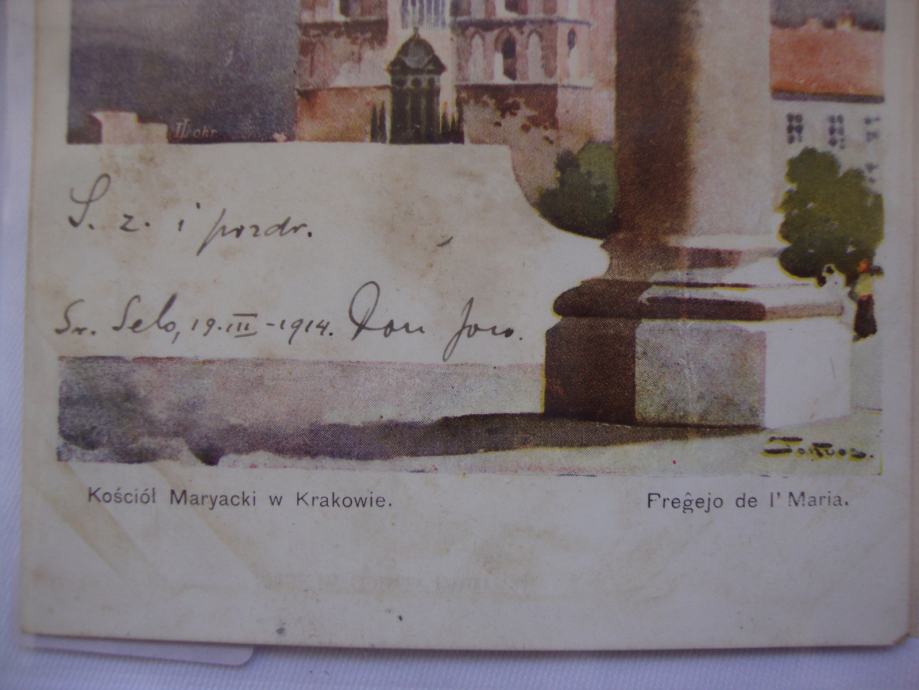 S. z. i pozdr.
Sv. Selo, 19.III-1914. Don Jovo.
Kościół Maryacki w Krakowie.
Freĝejo de l' Maria.